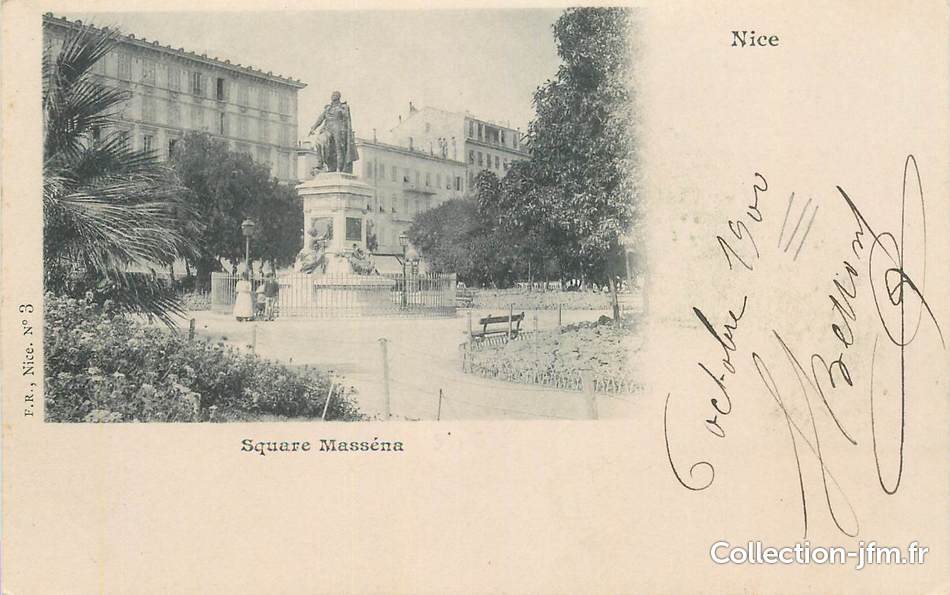 Nice
F.R., Nice. Nº 3
Square Masséna
6 octobre 1900
Collection-jfm.fr